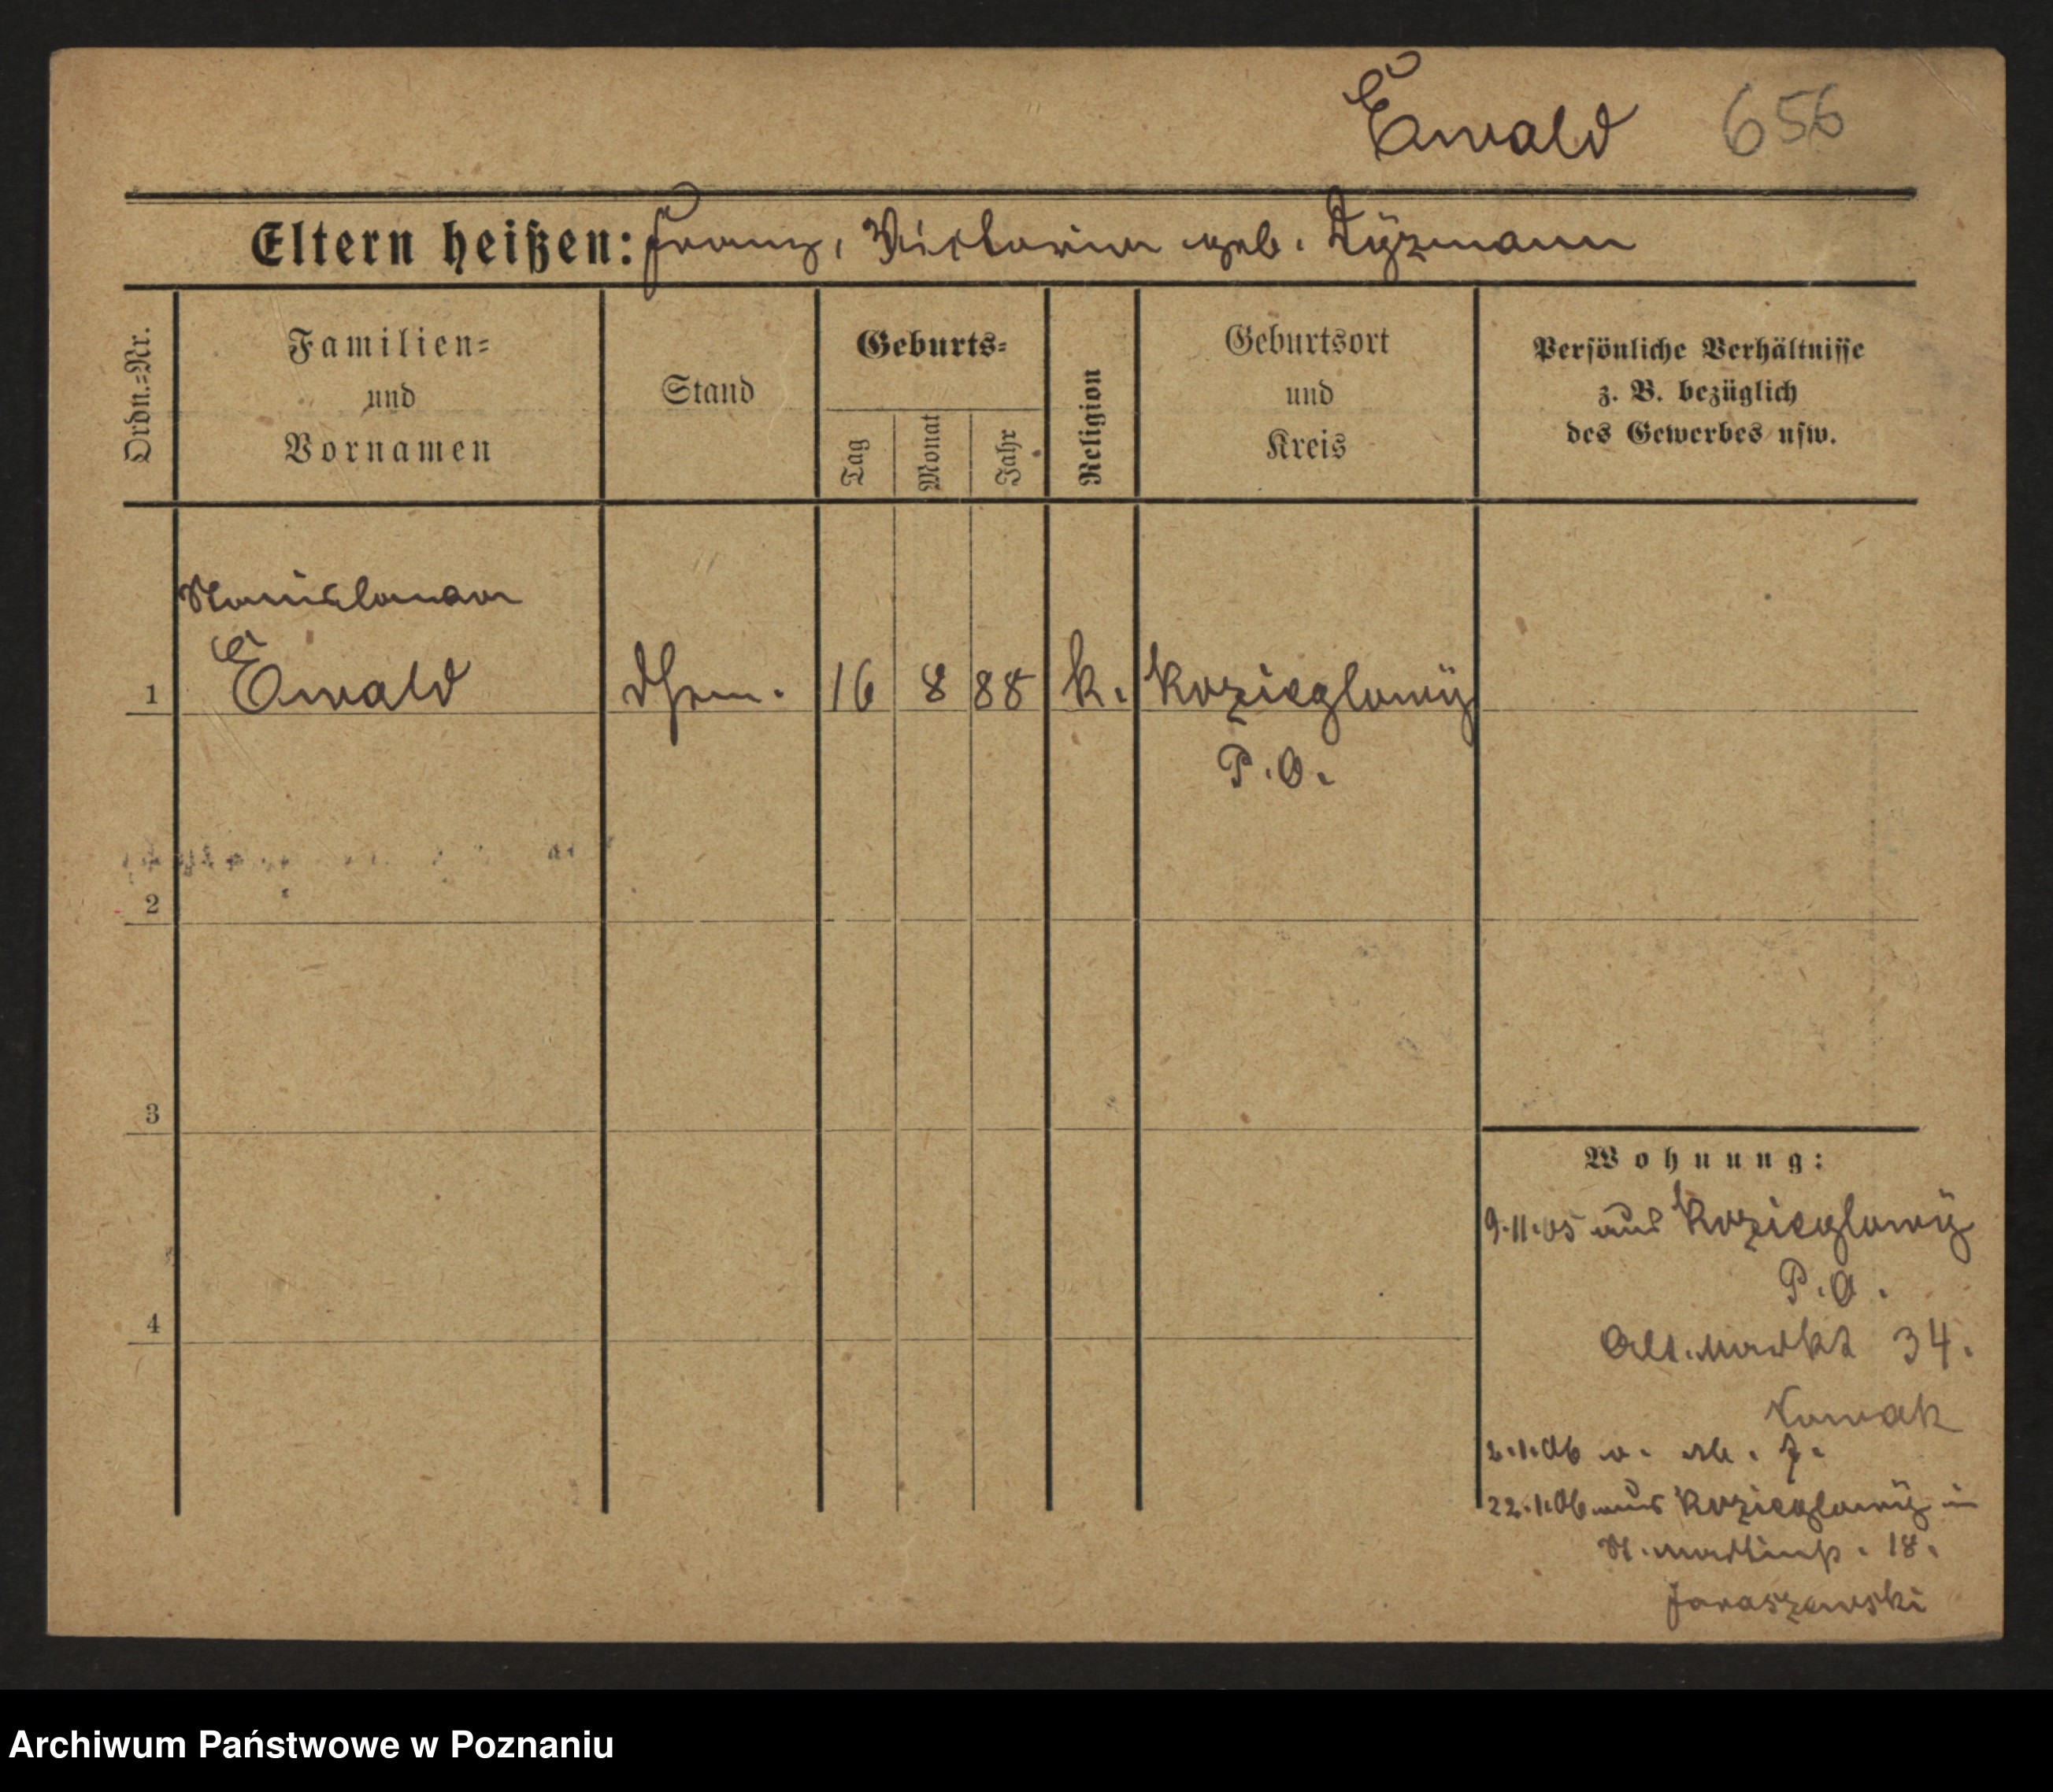 Ewald 656
Eltern heißen: Franz, Victoria geb. Dyzmann
Ordn.=Nr.
Familien=
und
Vornamen
Stand
Geburts=
Tag
Monat
Jahr
Religion
Geburtsort
und
Kreis
Persönliche Verhältnisse
z. B. bezüglich
des Gewerbes usw.
Stanislawa
1 Ewald 16 8 88 k. Kozieglowÿ
P.O.
2
3
4
Wohnung:
9.11.05 aus Kozieglowÿ
P.O.
Alt. Markt 34.
Nowak
2.1.06
22.1.06 aus Kozieglowÿ in
St. Martinstr. 18.
Jaraszewski
Archiwum Państwowe w Poznaniu